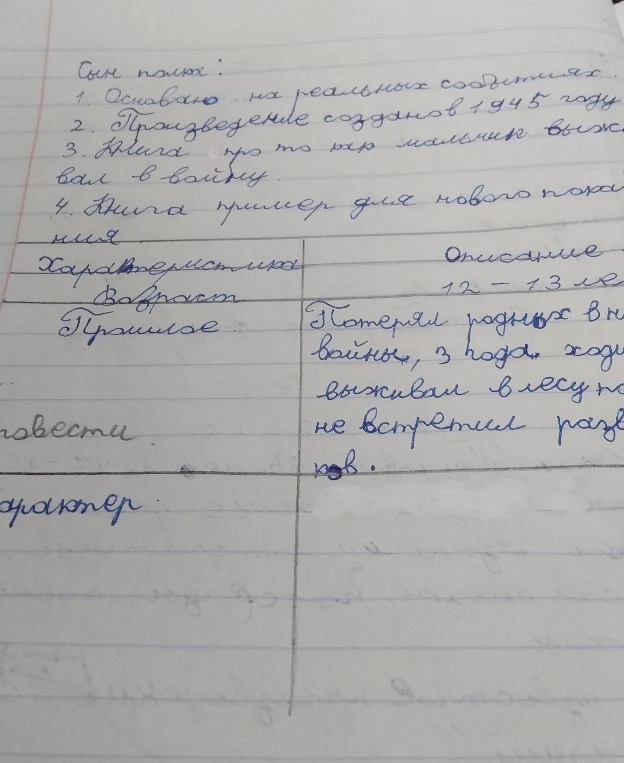 Сын полка:
1. Основано на реальных событиях.
2. Произведение создано в 1945 году
3. Книга про то как мальчик выжи
вал в войну.
4. Книга пример для нового пока
ния
Характеристика Описание
Возраст 12 – 13 ле
Прошлое. Потерял родных в н
войны, 3 года ходи
выживал в лесу по
повести не встретил разв
ков.
арактер